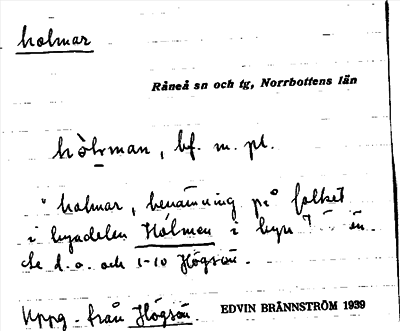 holmar
Råneå sn och tg, Norrbottens län
hòlman, bf. m. pl.
"holmar, benämning på folket
i byadelen Hólmen i byn
d. o. och 1-10 Högsön.
Uppg. från Högsön. EDVIN BRÄNNSTRÖM 1939